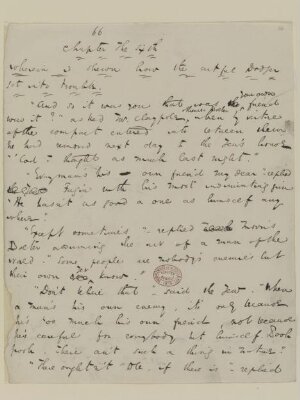 66
Chapter the
wherein is shewn how the artful Dodger
got into trouble.
"And so it was you that was your own friend
was it?" asked Mr. Claypole, when by virtue
of the compact entered into between them
he had removed next day to the Jew's house
"Cod I thought as much last night."
"Every man's his own friend my dear" replied
Fagin with his most insinuating grin
"He hasn't as good a one as himself any
where."
"Except sometimes" replied Morris
Bolter assuming the air of a man of the
world. "Some people are nobody's enemies but
their own yer know."
"Don't believe that" said the Jew. "When
a man's his own enemy, it's only because
he's too much his own friend, not because
he's careful for everybody but himself. Pooh
pooh, There ain't such a thing in natur."
"There oughtn't to be if there is" replied